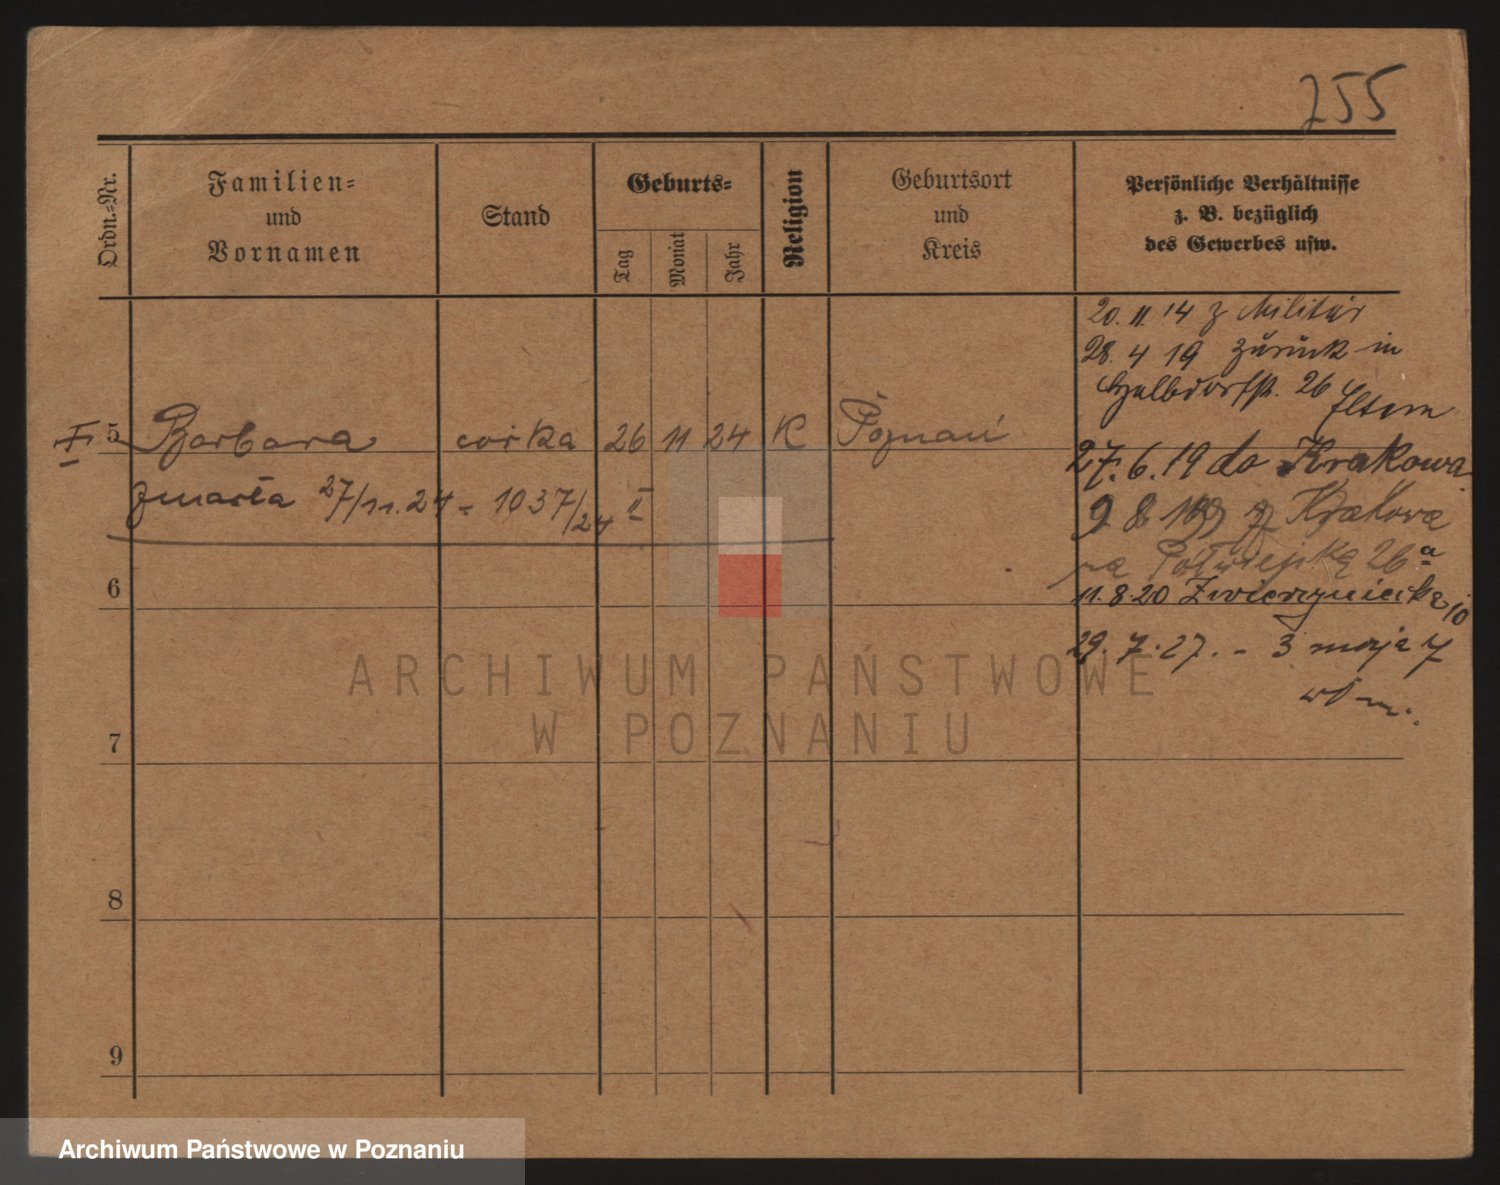 255
Ordn.=Nr.
Familien=
und
Vornamen
Stand
Geburts=
Tag
Monat
Jahr
Religion
Geburtsort
und
Kreis
Persönliche Verhältnisse
z. B. bezüglich
des Gewerbes usw.
20. 11. 14 z Militär
28. 4 19 zurück in
26 Eltern
I 5 Barbara córka 26 11 24 K Poznań
27. 6. 19 do Krakowa
zmarła 27/11. 24 - 1037/24 II
9 8 19 z Krakowa
na Półwiejską 26 a
6
11. 8 20 Zwierzyniecka 10
29. 7. 27. - 3 maja 7
7
8
9
ARCHIWUM PAŃSTWOWE
W POZNANIU
Archiwum Państwowe w Poznaniu